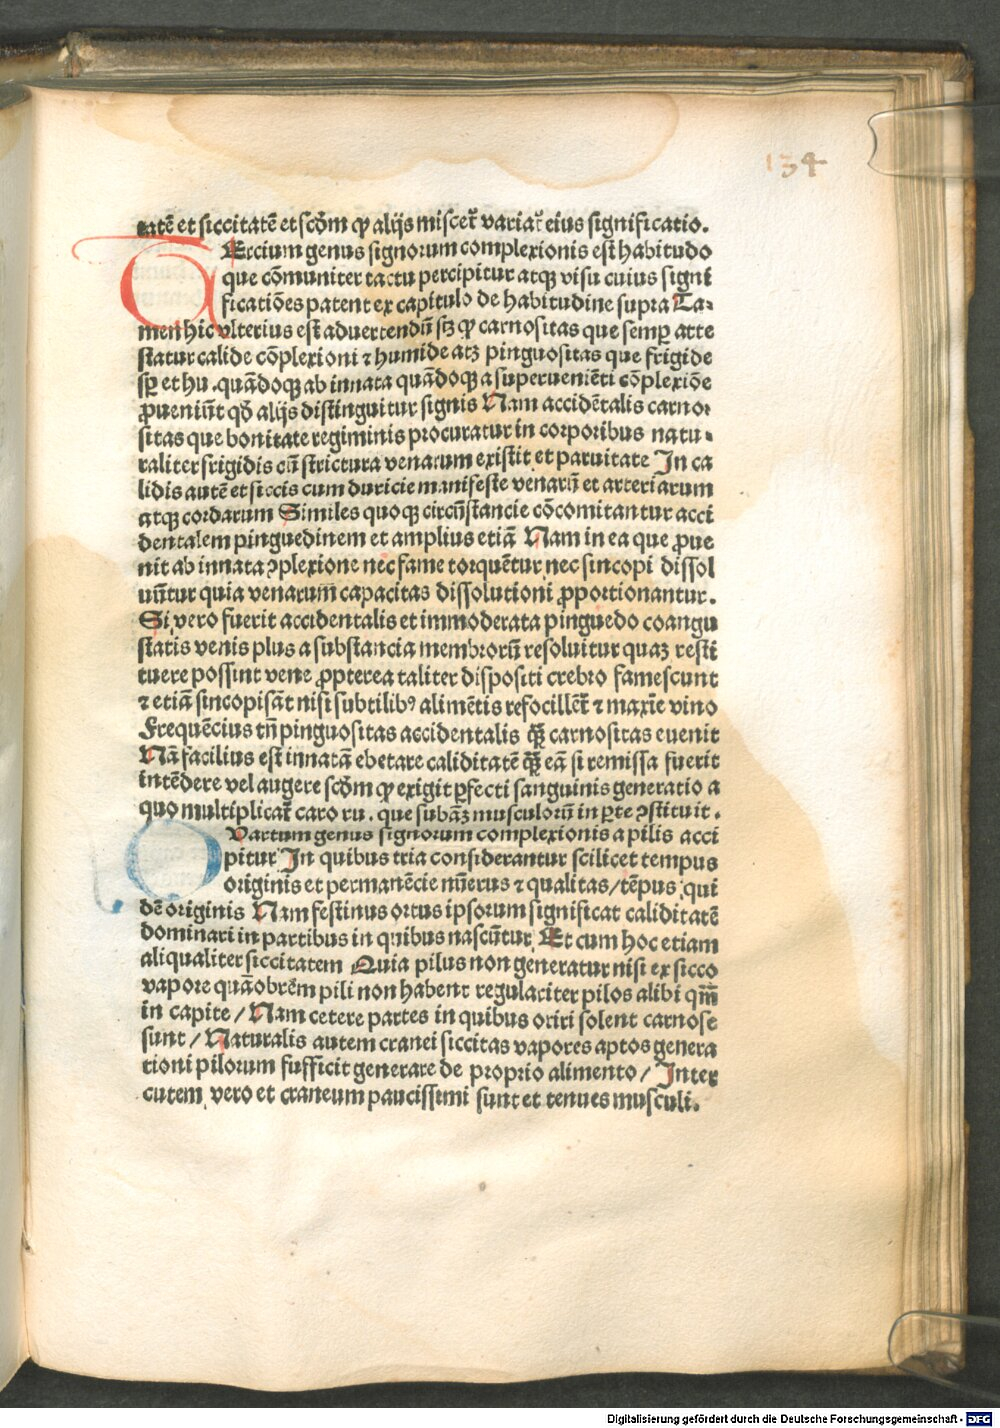 134
tatē et siccitatē et scōm ꝙ alijs miscet̄ variat̄ eius significatio.
TErcium genus signorum complexionis est habitudo
que cōmuniter tactu percipitur atqꝫ visu cuius signi
ficatiōes patent ex capitulo de habitudine supra Ta-
men hic vlterius est aduertendū sꝫ ꝙ carnositas que semꝑ atte
statur calide cōplexioni ⁊ humide atꝫ pinguositas que frigide
sꝑ et hu. quādoqꝫ ab innata quādoqꝫ a superueniēti cōplexiōe
ꝓueniūt qḋ alijs distinguitur signis Nam accidētalis carno-
sitas que bonitate regiminis procuratur in corporibus natu-
raliter frigidis cū strictura venarum existit et paruitate In ca
lidis autē et siccis cum duricie manifeste venarū et arteriarum
atqꝫ cordarum Similes quoqꝫ circūstancie cōcomitantur acci
dentalem pinguedinem et amplius etiā Nam in ea que ꝓue
nit ab innata ꝯplexione nec fame torquētur nec sincopi dissol
uūtur quia venarum̄ capacitas dissolutioni ꝓportionantur.
Si vero fuerit accidentalis et immoderata pinguedo coangu
statis venis plus a substancia membrorū resoluitur quaꝫ resti
tuere possint vene ꝓpterea taliter dispositi crebro famescunt
⁊ etiā sincopisāt nisi subtilibꝰ alimētis refocillēt̄ ⁊ maxīe vino
Frequēcius tn̄ pinguositas accidentalis qꝫ̄ carnositas euenit
Nā facilius est innatā ebetare caliditatē qꝫ̄ eā si remissa fuerit
intēdere vel augere scōm ꝙ exigit ꝑfecti sanguinis generatio a
quo multiplicat̄ caro ru. que subāꝫ musculorū in ꝑte ꝯstituit.
QVartum genus signorum complexionis a pilis acci
pitur In quibus tria considerantur scilicet tempus
originis et permanēcie nūerus ⁊ qualitas/tēpus qui
dē originis Nam festinus ortus ipsorum significat caliditatē
dominari in partibus in quibus nascūtur Et cum hoc etiam
aliqualiter siccitatem Quia pilus non generatur nisi ex sicco
vapore quāobrēm pili non habent regulariter pilos alibi qm̄
in capite/Nam cetere partes in quibus oriri solent carnose
sunt/Naturalis autem cranei siccitas vapores aptos genera
tioni pilorum fufficit generare de proprio alimento/Inter
cutem vero et craneum paucissimi sunt et tenues musculi.
Digitalisierung gefördert durch die Deutsche Forschungsgemeinschaft - DFG